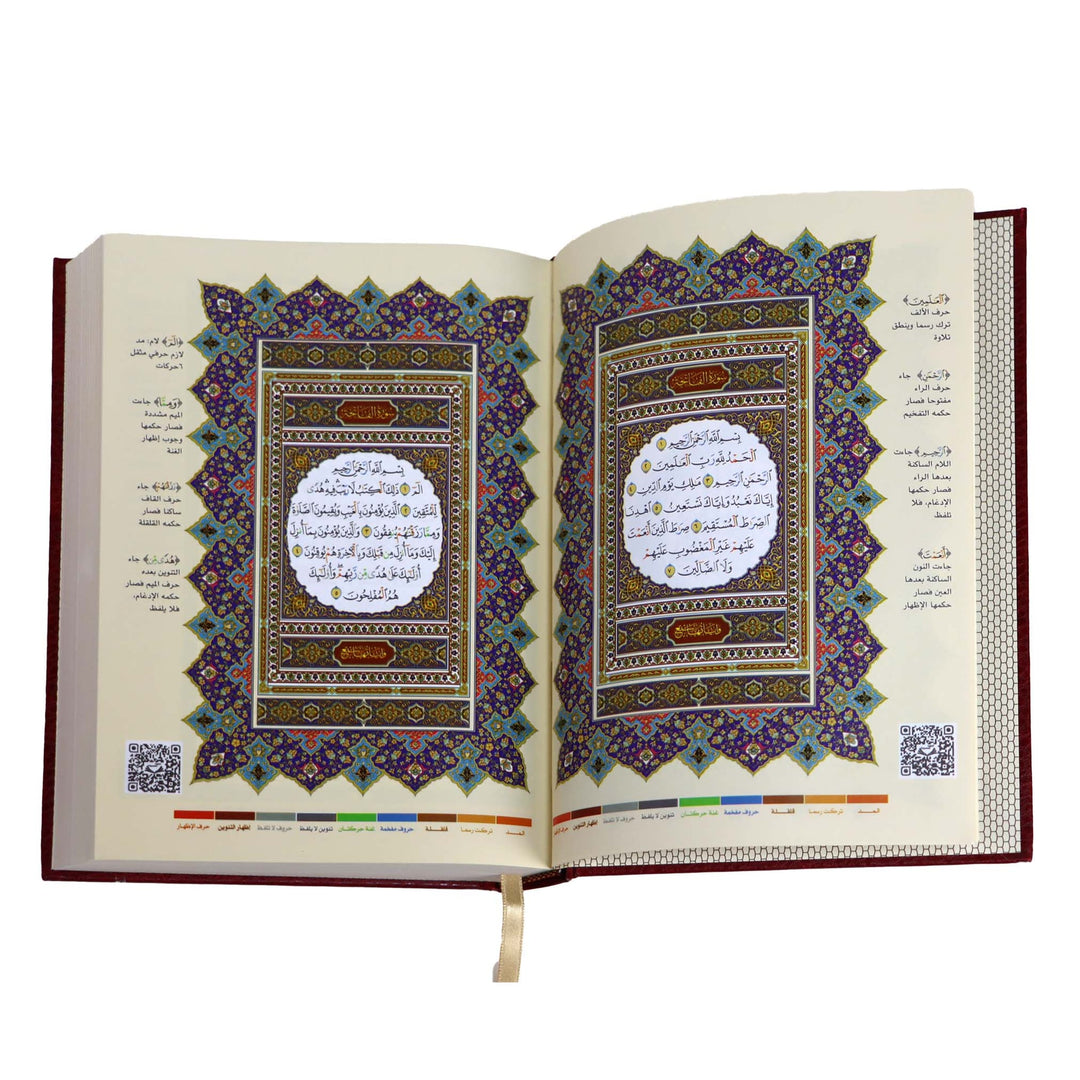 سورة الفاتحة
بِسْمِ ٱللَّهِ ٱلرَّحْمَٰنِ ٱلرَّحِيمِ ١
ٱلْحَمْدُ لِلَّهِ رَبِّ ٱلْعَٰلَمِينَ ٢
ٱلرَّحْمَٰنِ ٱلرَّحِيمِ ٣ مَٰلِكِ يَوْمِ ٱلدِّينِ ٤
إِيَّاكَ نَعْبُدُ وَإِيَّاكَ نَسْتَعِينُ ٥ ٱهْدِنَا
ٱلصِّرَٰطَ ٱلْمُسْتَقِيمَ ٦ صِرَٰطَ ٱلَّذِينَ أَنْعَمْتَ
عَلَيْهِمْ غَيْرِ ٱلْمَغْضُوبِ عَلَيْهِمْ
وَلَا ٱلضَّآلِّينَ ٧
﴿ٱلْعَٰلَمِينَ﴾
حرف الألف
ترك رسما وينطق
تلاوة
﴿ٱلرَّحْمَٰنِ﴾ جاء
حرف الراء
مفتوحا فصار
حكمه التفخيم
﴿ٱلرَّحِيمِ﴾ جاءت
اللام الساكنة
بعدها الراء
فصار حكمها
الإدغام، فلا
تلفظ
﴿أَنْعَمْتَ﴾
جاءت النون
الساكنة بعدها
العين فصار
حكمها الإظهار
المـد تركت رسما قلقلة حروف مفخمة غنة حركتان تنوين لا يلفظ حروف لا تلفظ إظهار التنوين
سورة الفاتحة
بِسْمِ ٱللَّهِ ٱلرَّحْمَٰنِ ٱلرَّحِيمِ
الٓمٓ ١ ذَٰلِكَ ٱلْكِتَٰبُ لَا رَيْبَ فِيهِ هُدًى
لِّلْمُتَّقِينَ ٢ ٱلَّذِينَ يُؤْمِنُونَ بِٱلْغَيْبِ وَيُقِيمُونَ ٱلصَّلَوٰةَ
وَمِمَّا رَزَقْنَٰهُمْ يُنفِقُونَ ٣ وَٱلَّذِينَ يُؤْمِنُونَ بِمَآ أُنزِلَ
إِلَيْكَ وَمَآ أُنزِلَ مِن قَبْلِكَ وَبِٱلْأَخِرَةِ هُمْ يُوقِنُونَ ٤
أُو۟لَٰٓئِكَ عَلَىٰ هُدًى مِّن رَّبِّهِمْ وَأُو۟لَٰٓئِكَ
هُمُ ٱلْمُفْلِحُونَ ٥
﴿الٓمٓ﴾ لام: مد
لازم حرفي مثقل
٦حركات
﴿وَمِمَّا﴾ جاءت
الميم مشددة
فصار حكمها
وجوب إظهار
الغنة
﴿رَزَقْنَٰهُمْ﴾ جاء
حرف القاف
ساكنا فصار
حكمه القلقلة
﴿هُدًى مِّن﴾ جاء
التنوين بعده
حرف الميم فصار
حكمه الإدغام،
فلا يلفظ
المـد تركت رسما قلقلة حروف مفخمة غنة حركتان تنوين لا يلفظ حروف لا تلفظ إظهار التنوين حرف الإظهار